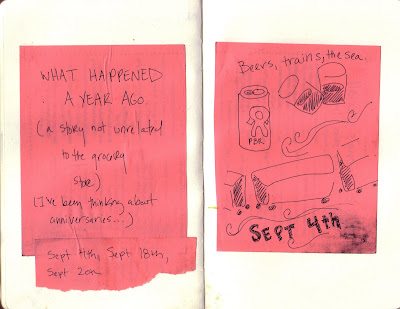 WHAT HAPPENED
A YEAR AGO.
(a story not unrelated
to the grocery
store)
(I've been thinking about
anniversaries...)
Sept 4th, Sept 18th,
Sept 20th
Beers, trains, the sea.
PBR
SEPT 4th